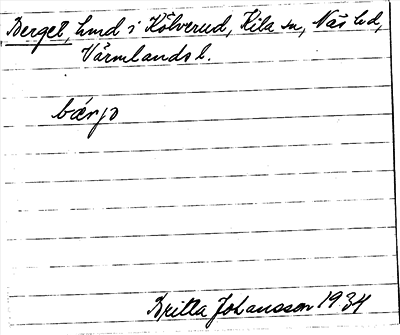 Berget, hmd i Kölverud, Kila sn, Näs hd,
Värmlands l.
bærjə
Britta Johansson 1934